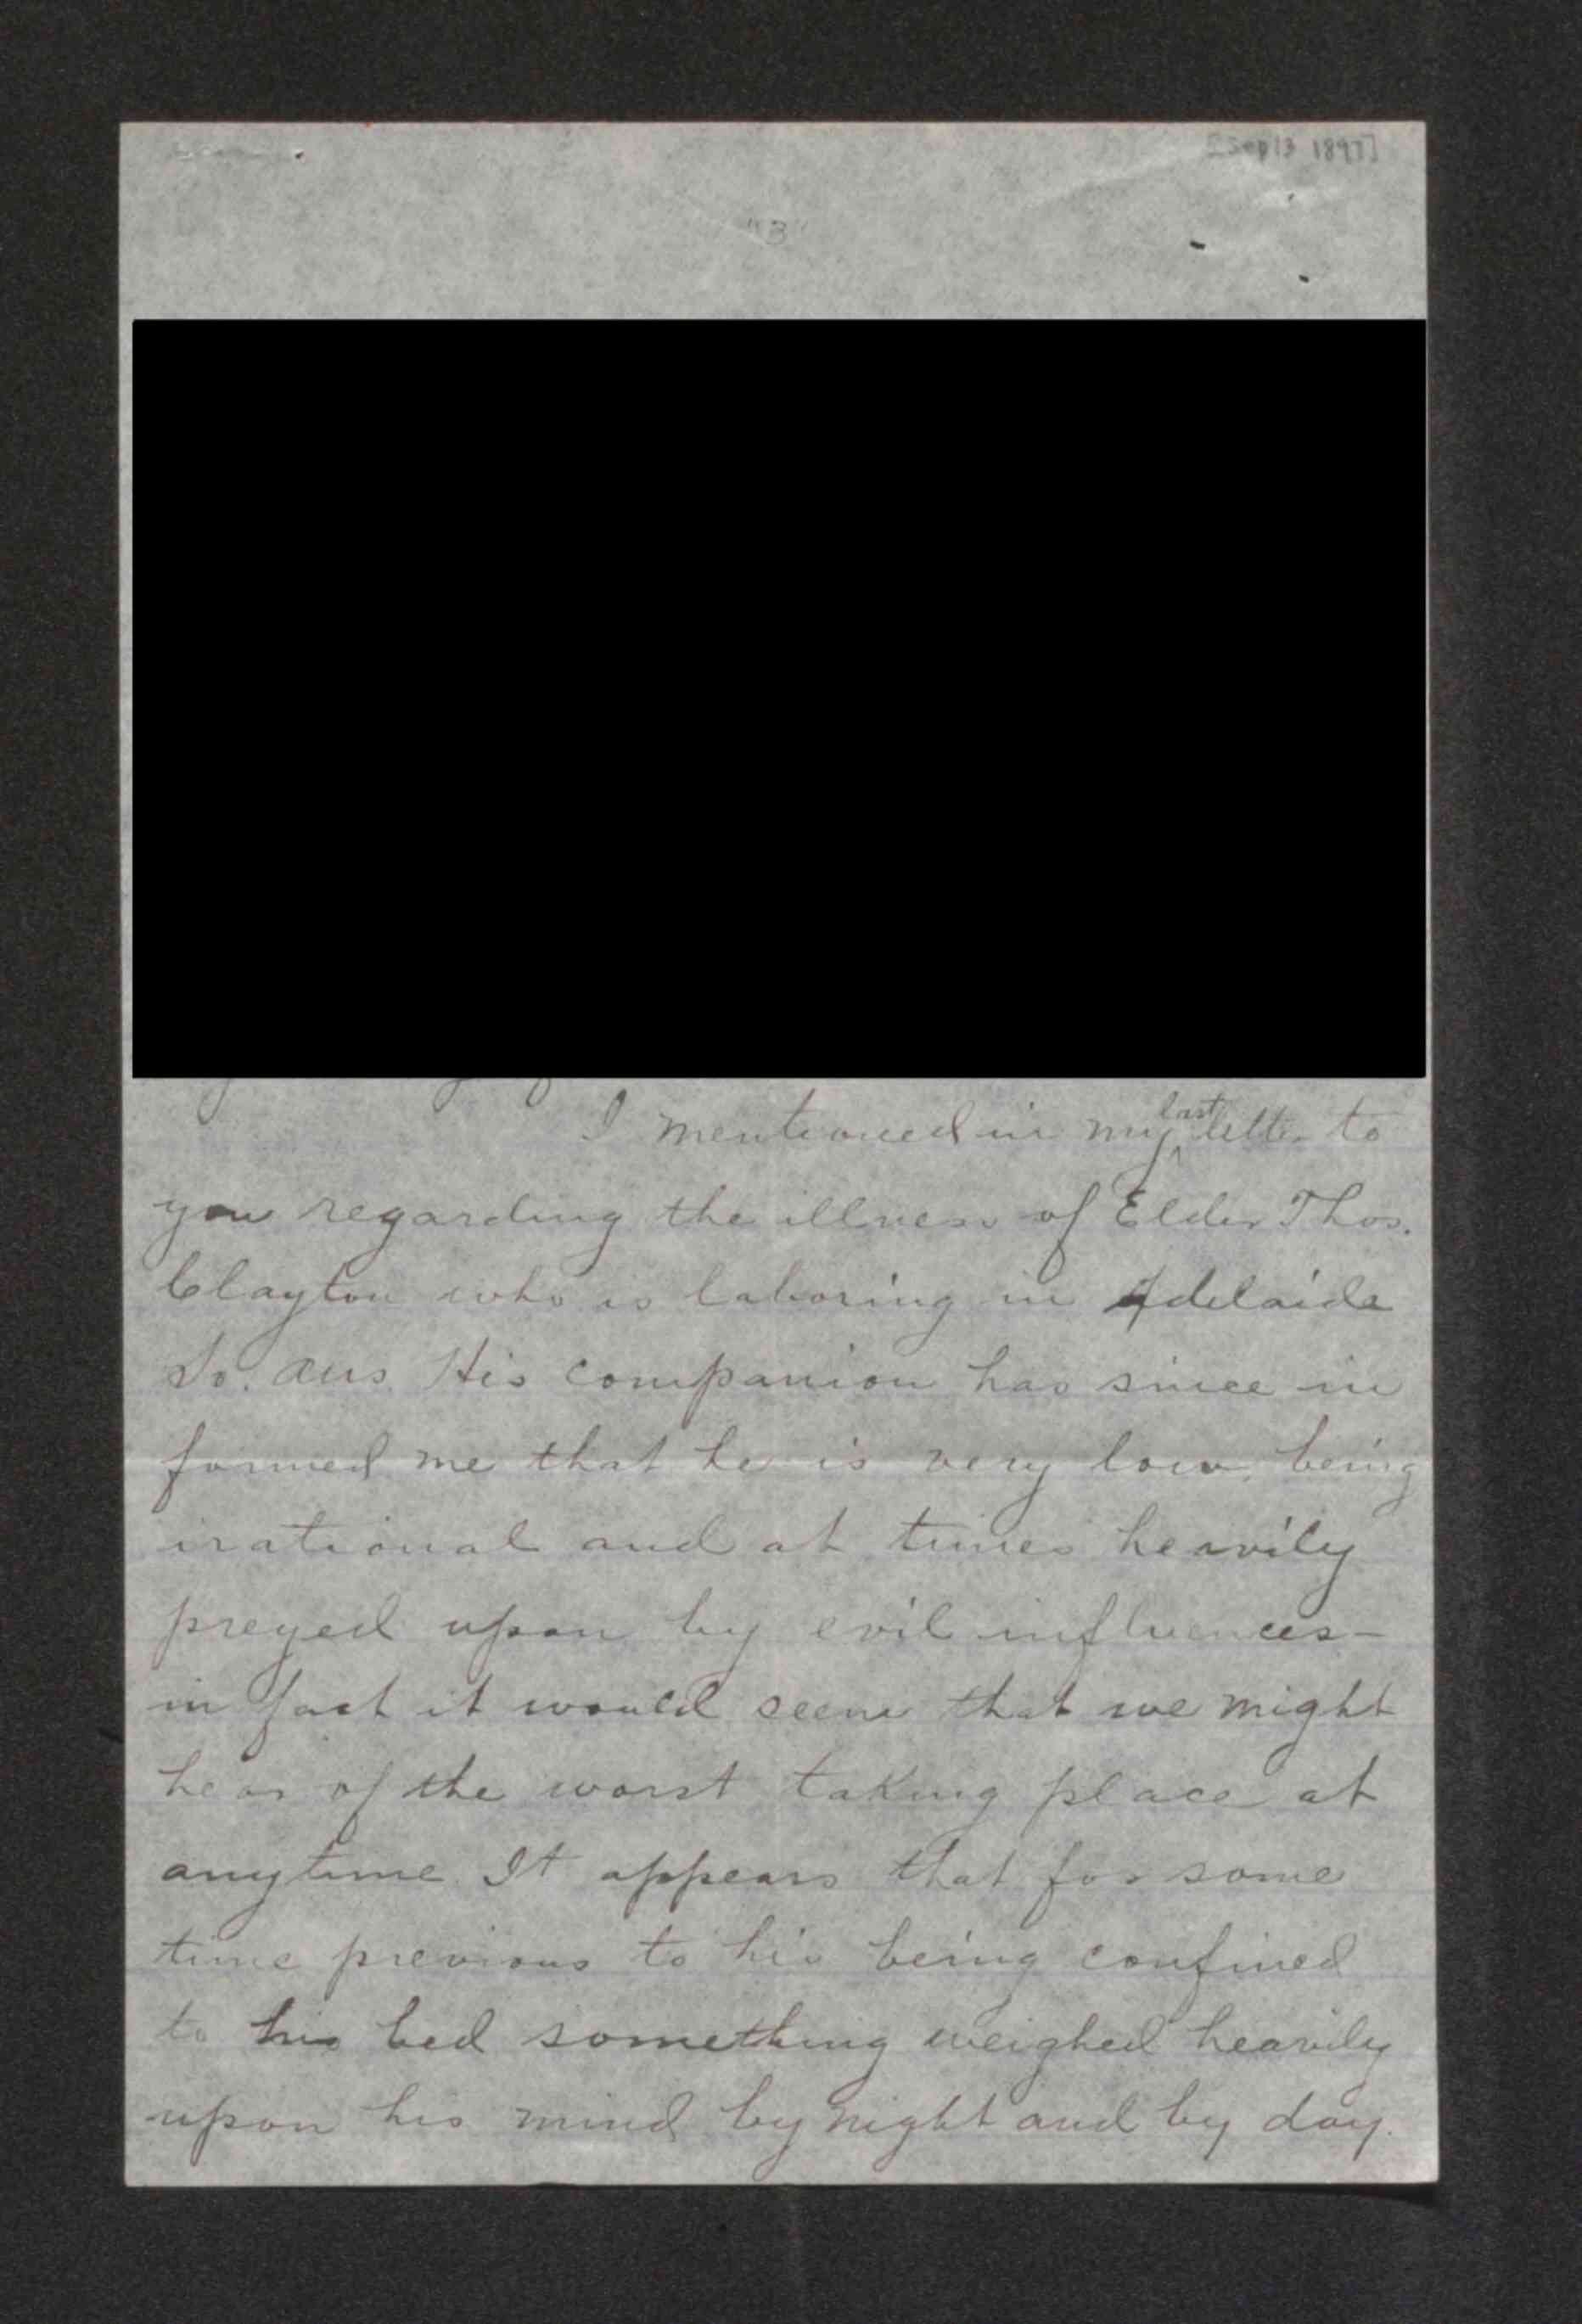 [Sep 13 1897]
"3"
I mentioned in my last letter to
you regarding the illness of Elder Thos.
Clayton who is laboring in Adelaide
So. Aus. His companion has since in
formed me that he is very low, being
irational and at times heavily
preyed upon by evil influences-
in fact it would seem that we might
hear of the worst taking place at
anytime. It appears that for some
time previous to his being confined
to his bed something weighed heavily
upon his mind by night and by day.